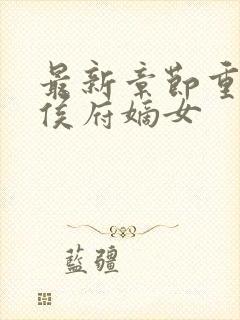 最新章節重
侯府嫡女
藍疆